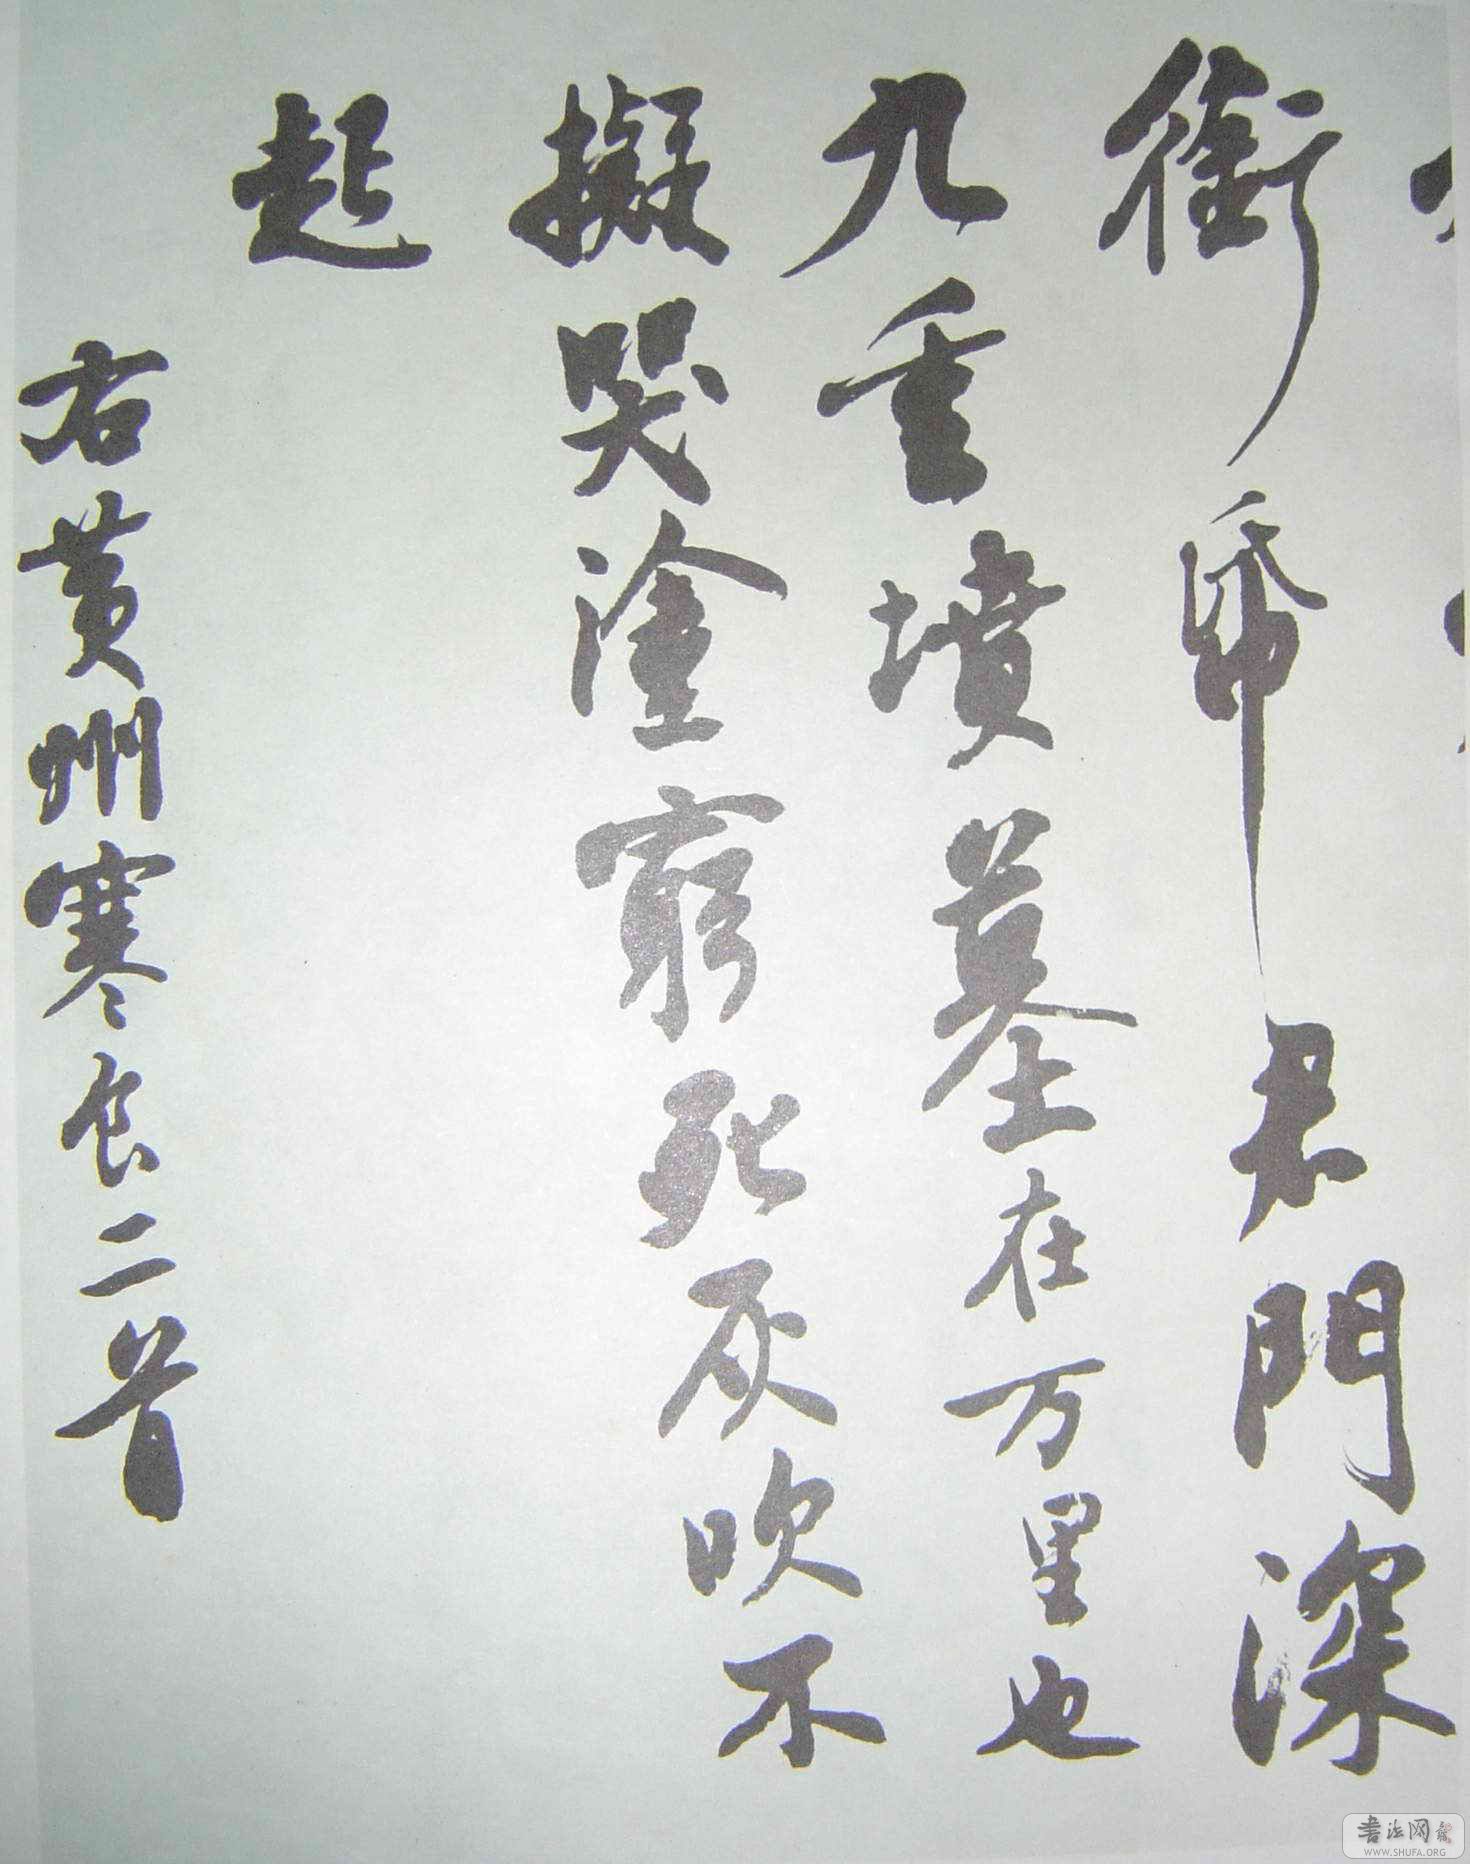 銜帋君門深
九重墳墓在万里也
擬哭塗窮死灰吹不
起
右黄州寒食二首
书法网
WWW.SHUFA.ORG